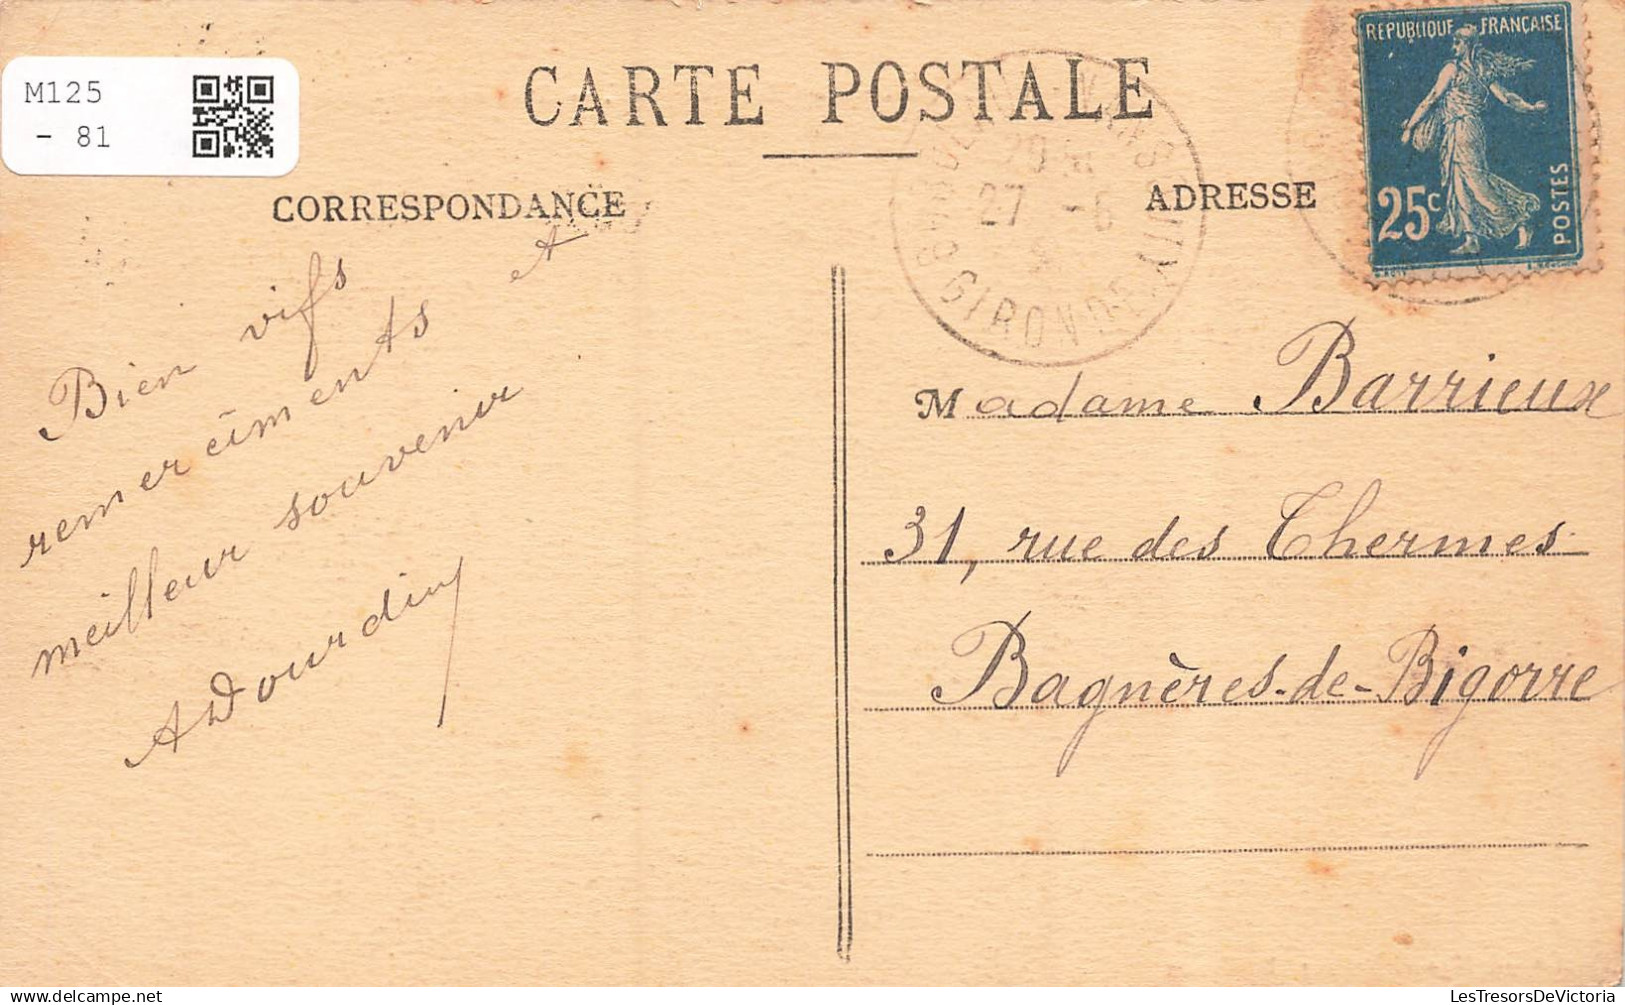 M125
- 81
CARTE POSTALE
CORRESPONDANCE
ADRESSE
REPUBLIQUE FRANÇAISE
25c
POSTES
GIRONDE
27 -6
Bien vifs
remercîments &
meilleur souvenir
ADourdin
Madame Barrieux
31, rue des Thermes
Bagnères-de-Bigorre
delcampe.net
LesTresorsDeVictoria